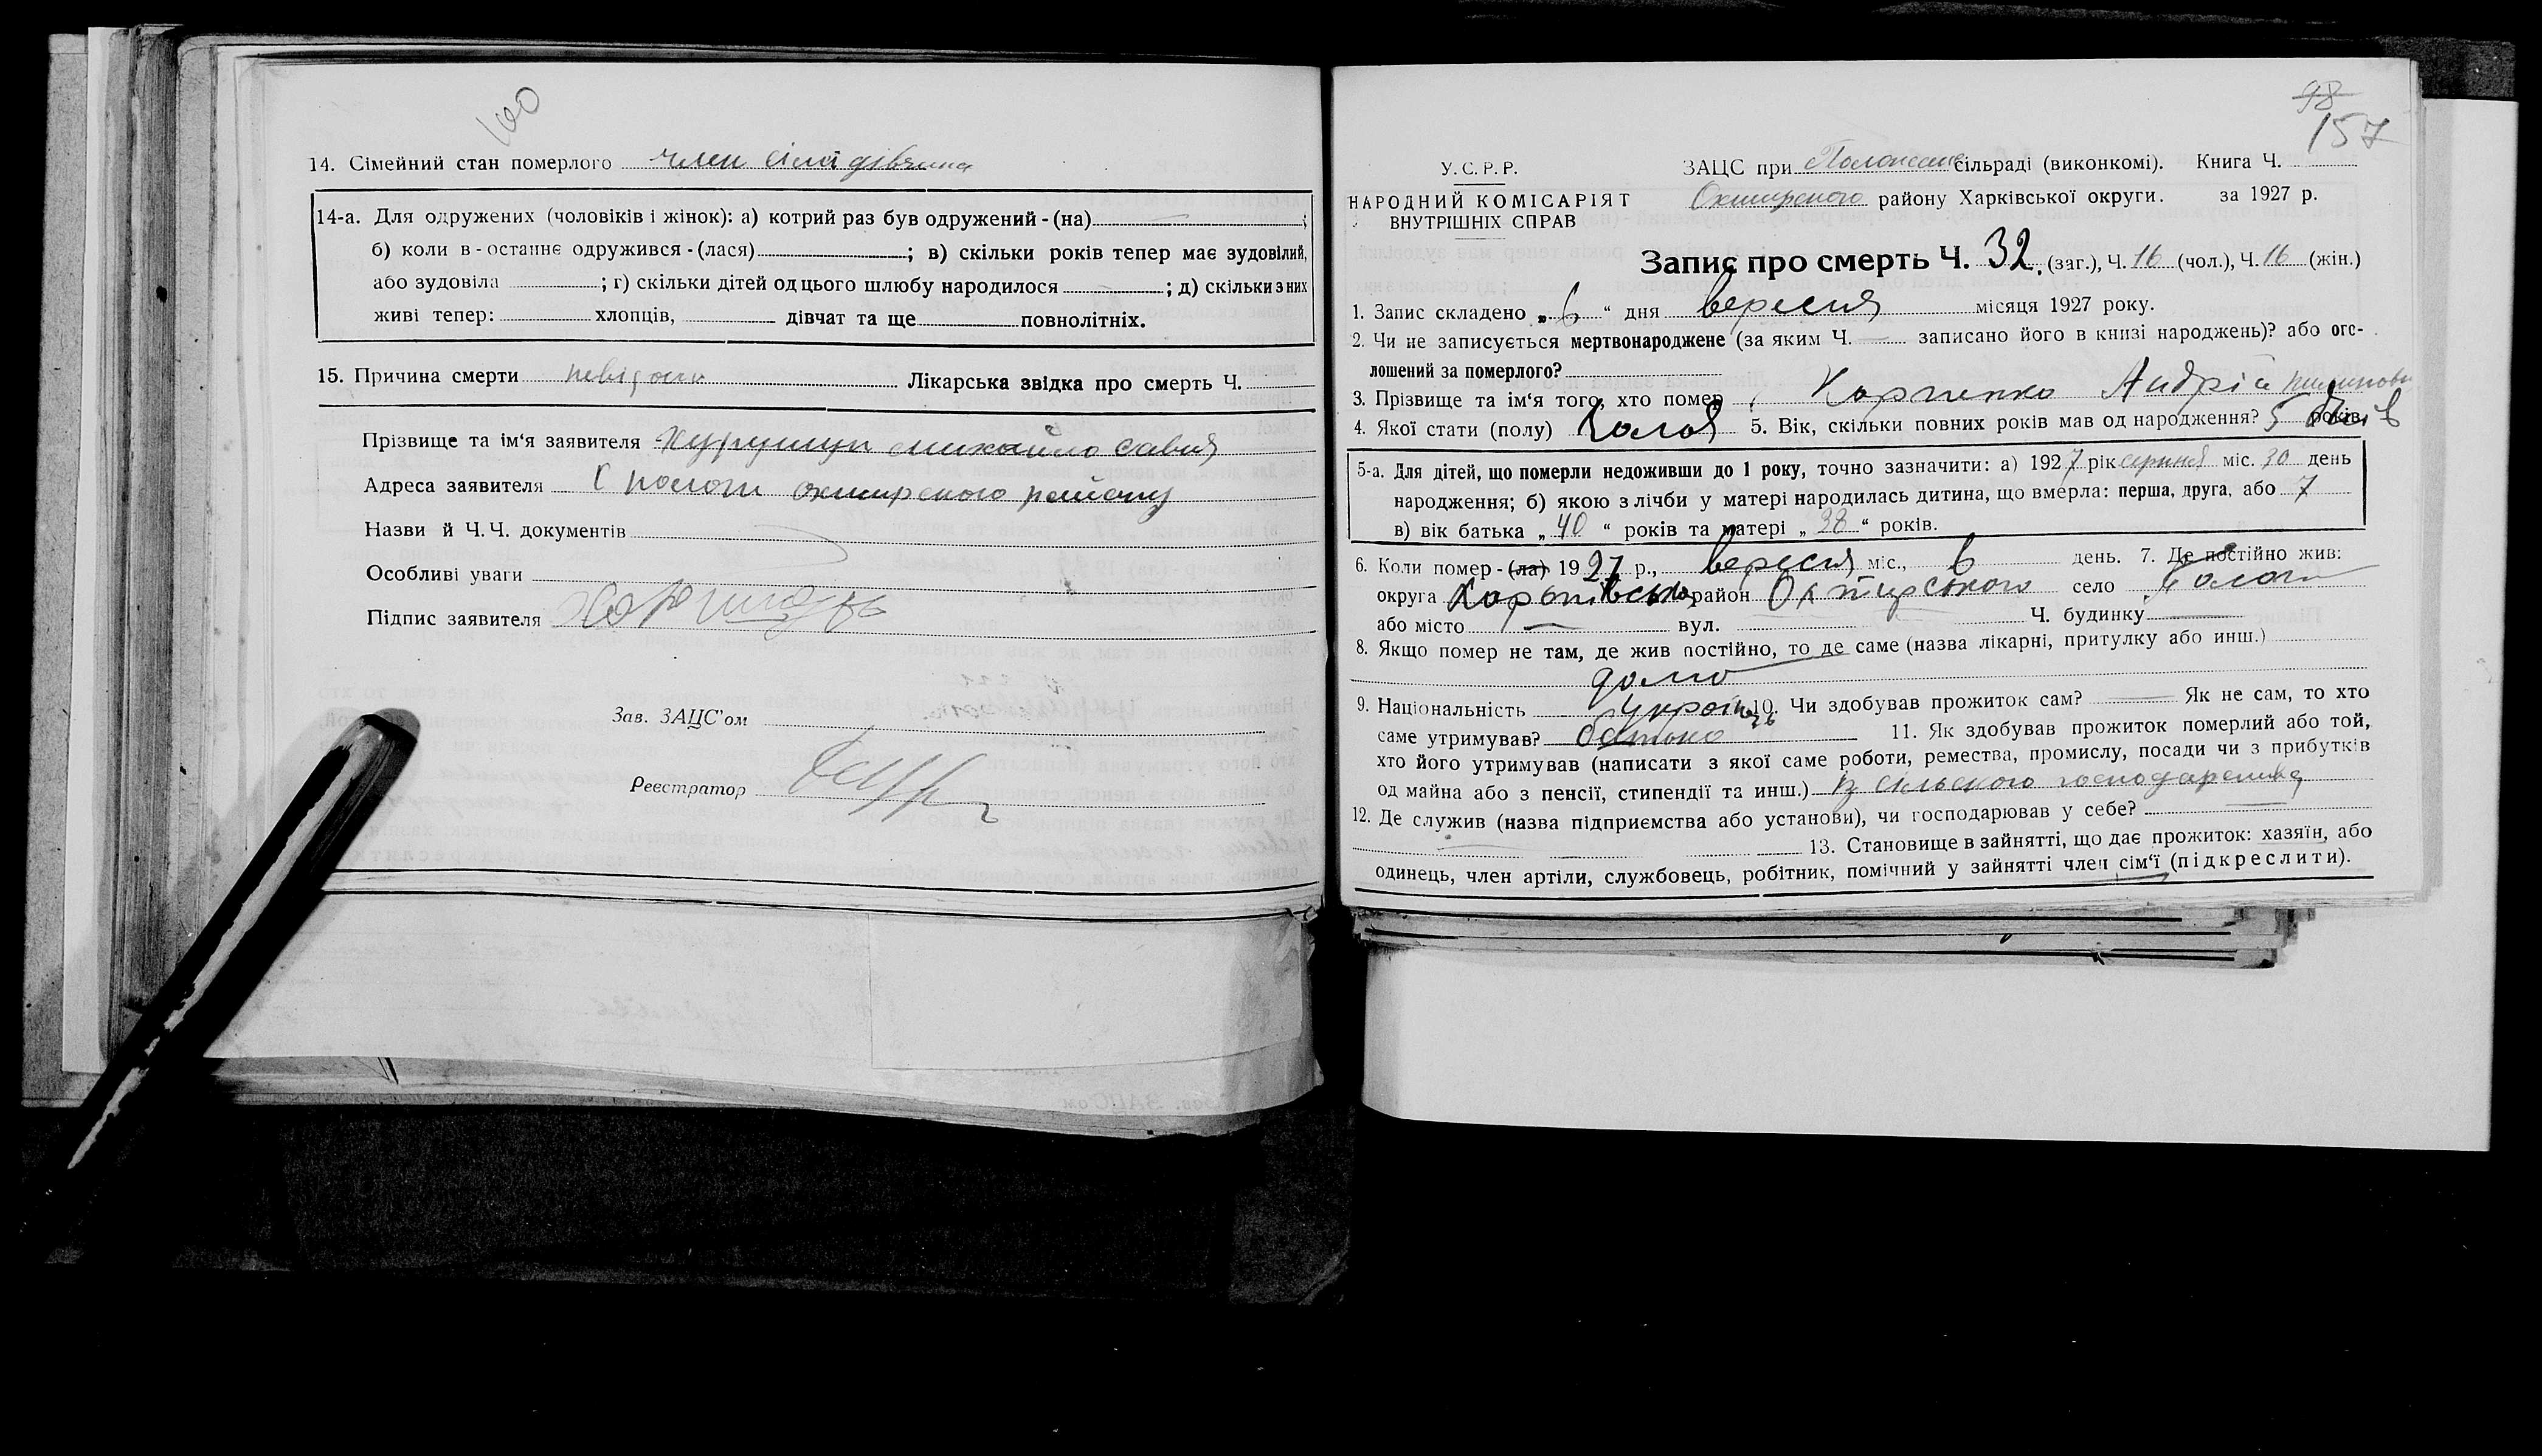 100
14. Сімейний стан померлого член сімї дівчина
14-а. Для одружених (чоловіків і жінок): а) котрий раз був одружений - (на) ;
б) коли в - останнє одружився - (лася) ; в) скільки років тепер має зудовілий,
або зудовіла ; г) скільки дітей од цього шлюбу народилося ; д) скільки з них
живі тепер: хлопців, дівчат та ще повнолітніх.
15. Причина смерти невідома Лікарська звідка про смерть Ч.
Прізвище та ім'я заявителя михайло Савич
Адреса заявителя С Пологи охтирського району
Назви й Ч. Ч. документів
Особливі уваги
Підпис заявителя
Зав. ЗАЦС'ом
Реєстратор
98
157
У. С. Р. Р.
НАРОДНИЙ КОМІСАРІЯТ
ВНУТРІШНІХ СПРАВ
ЗАЦС при сільраді (виконкомі). Книга Ч.
Охтирського району Харківської округи. за 1927 р.
Запис про смерть Ч. 32. (заг.), Ч. 16 (чол.), Ч. 16 (жін.)
1. Запис складено „ 6 “ дня вересня місяця 1927 року.
2. Чи не записується мертвонароджене (за яким Ч. — записано його в книзі народжень)? або ого-
лошений за померлого?
3. Прізвище та ім'я того, хто помер Карпенко Андрій
4. Якої стати (полу) 5. Вік, скільки повних років мав од народження? 5 років
5-а. Для дітей, що померли недоживши до 1 року, точно зазначити: а) 1927 рік серпня міс. 30 день
народження; б) якою з лічби у матері народилась дитина, що вмерла: перша, друга, або 7
в) вік батька „ 40 “ років та матері „ 38 “ років.
6. Коли помер - (ла) 1927 р., вересня міс., 6 день. 7. Де постійно жив:
округа Харьківська район Охтирського село Пологи
або місто — вул. Ч. будинку —
8. Якщо помер не там, де жив постійно, то де саме (назва лікарні, притулку або инш.)
дома
9. Національність Українець 10. Чи здобував прожиток сам? — Як не сам, то хто
саме утримував? батько 11. Як здобував прожиток померлий або той,
хто його утримував (написати з якої саме роботи, ремества, промислу, посади чи з прибутків
од майна або з пенсії, стипендії та инш.) із сільского господарства
12. Де служив (назва підприємства або установи), чи господарював у себе? —
13. Становище в зайнятті, що дає прожиток: хазяїн, або
одинець, член артіли, службовець, робітник, помічний у зайнятті член сім'ї (підкреслити).